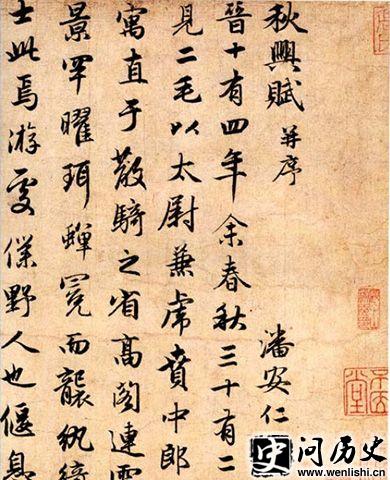 秋興賦 并序
潘安仁
晉十有四年余春秋三十有二
見二毛以太尉兼虎賁中郎
寓直于散騎之省高閣連雲
景罕曜珥蟬冕而襲紈綺
士此焉游處僕野人也偃息
问历史
www.wenlishi.cn